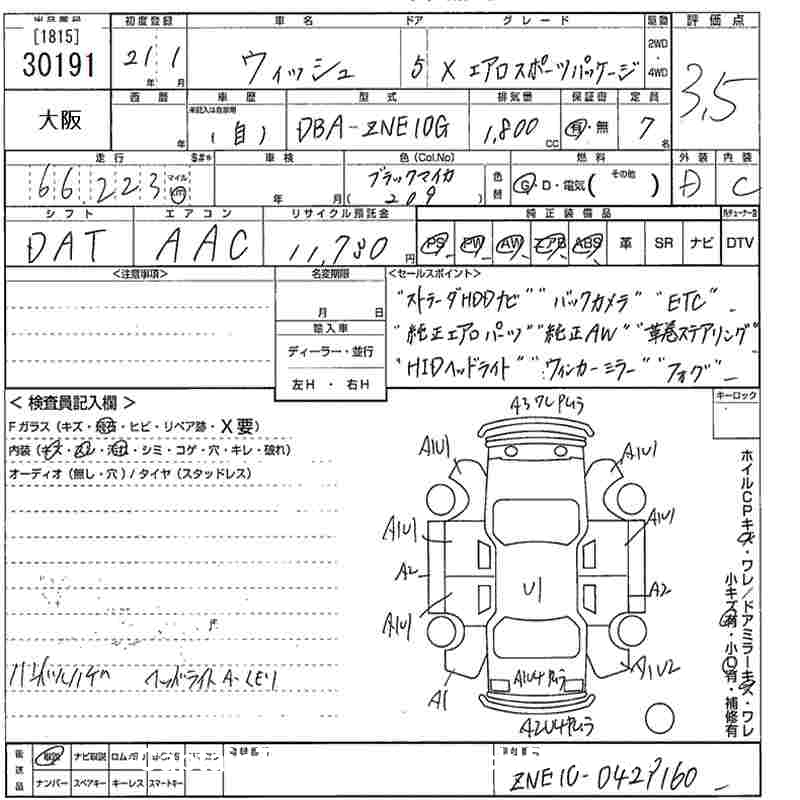 [1815]
30191
大阪
初度登録 21年 1月
車名 ウィッシュ
ドア 5
グレード X エアロスポーツパッケージ
駆動 2WD・4WD
評価点 3.5
西暦 年
車歴 未記入は自家用 (自)
型式 DBA-ZNE10G
排気量 1,800 CC
保証書 有・無
定員 7名
走行 66223 マイル km
車検 年 月
色(Col.No) ブラックマイカ (209)
色替
燃料 G・D・電気( その他 )
外装 D
内装 C
シフト DAT
エアコン AAC
リサイクル預託金 11,780円
純正装備品 PS PW AW エアB ABS 革 SR ナビ DTV
<注意事項>
名変期限 月 日
輸入車
ディーラー・並行
左H・右H
<セールスポイント>
"ストラーダHDDナビ" "バックカメラ" "ETC"
"純正エアロパーツ" "純正AW" "革巻ステアリング"
"HIDヘッドライト" "ウィンカーミラー" "フォグ"
<検査員記入欄>
Fガラス(キズ・飛石・ヒビ・リペア跡・X要)
内装(キズ・スレ・汚れ・シミ・コゲ・穴・キレ・破れ)
オーディオ(無し・穴)/タイヤ(スタッドレス)
キーロック
A1U1 A1U1
A1U1 A1U1
A2 U1 A2
A1U1
A1 A1U2
ホイルCPキズ・ワレ/ドアミラーキズ・ワレ
小キズ有・小凹有・補修有
後送品 取説 ナビ取説
ナンバー スペアキー キーレス スマートキー